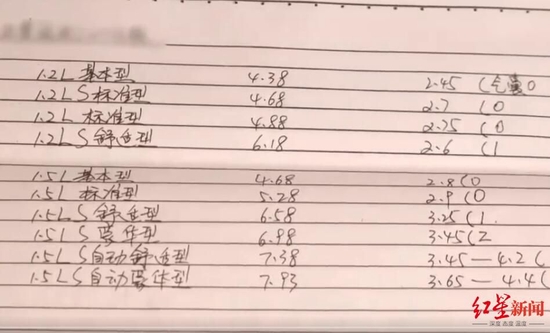 1.2L 基本型 4.38 2.45 (气囊0
1.2L S 标准型 4.68 2.7 (0
1.2L 标准型 4.88 2.75 (0
1.2L S 舒适型 6.18 2.6 (1
1.5L 基本型 4.68 2.8 (0
1.5L 标准型 5.28 2.9 (0
1.5L S 舒适型 6.58 3.25 (1.
1.5L S 豪华型 6.98 3.45 (2
1.5L S 自动舒适型 7.38 3.45—4.2 (
1.5L S 自动豪华型 7.93 3.65—4.4 (
红星新闻
深度 态度 温度